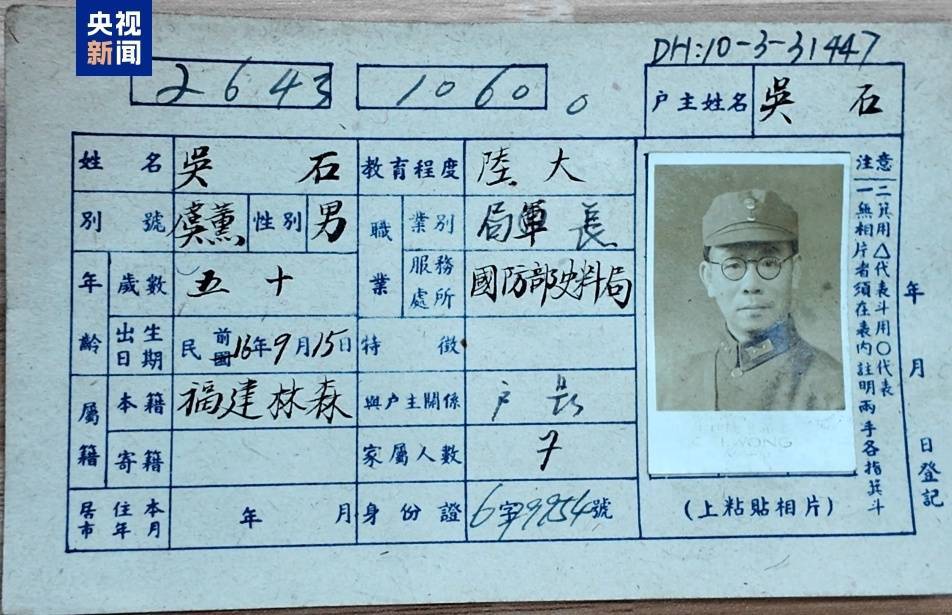 央视
新闻
DH:10-3-31447
2643
1060
户主姓名 吳石
姓名 吳石 教育程度 陸大
別號 虞薰 性別 男 職業 業別 局軍長
年齡 歲數 五十 服務處所 國防部史料局
出生日期 民前國16年9月15日 特徵
屬籍 本籍 福建林森 與户主關係 户長
寄籍 家屬人數 7
居住本市年月 年 月 身份證 6字9254號
(上粘貼相片)
注意
一無相片者須在表内註明兩手各指箕斗
二箕用△代表斗用○代表
年月日登記